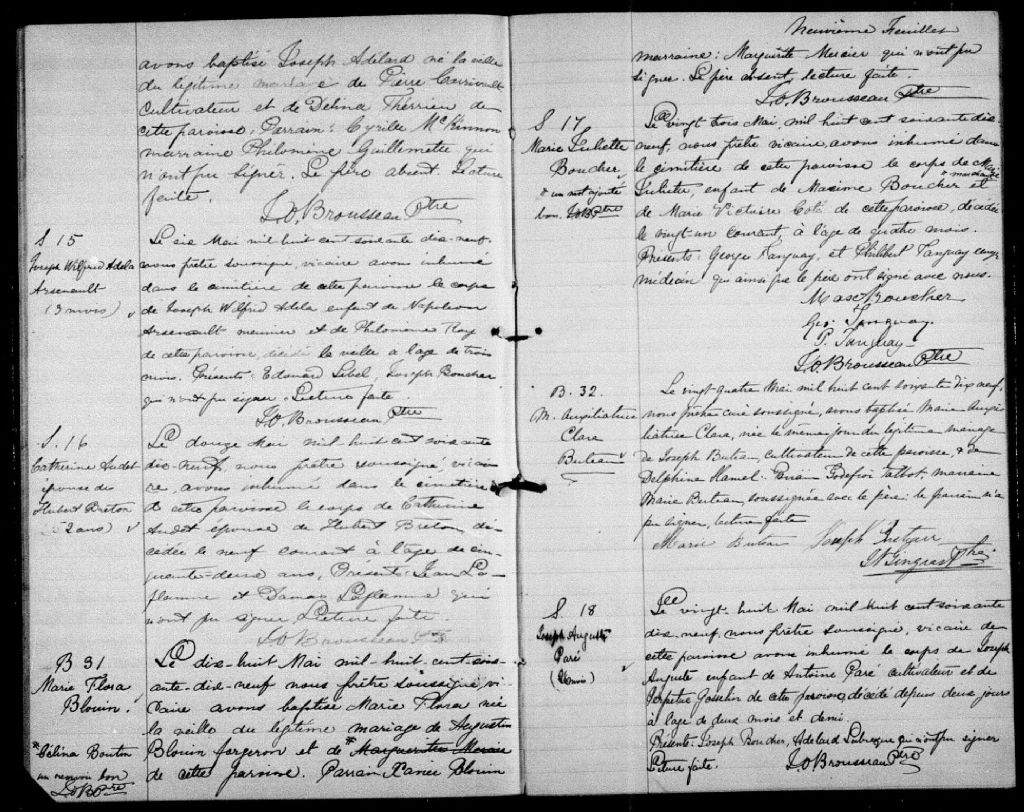 avons baptisé Joseph Adélard né la veille
du légitime mariage de Pierre
Cultivateur et de Délina Therrien de
cette paroisse. Parrain: Cyrille McKinnon
marraine Philomène Guillemette qui
n'ont pu signer. Le père absent. Lecture
faite.
J.O. Brousseau Ptre
S 15
Joseph Wilfred Adela
Arsenault
(3 mois)
Le six Mai mil huit cent soixante dix-neuf
nous prêtre soussigné, vicaire avons inhumé
dans le cimetière de cette paroisse le corps
de Joseph Wilfred Adela enfant de Napoleon
Arsenault meunier et de Philomène Roy
de cette paroisse, décédé la veille à l'age de trois
mois. Présents: Edouard Lebel, Joseph Boucher
qui n'ont pu signer. Lecture faite
J.O. Brousseau Ptre
S. 16
Catherine Audet
épouse de
Hubert Breton
(52 ans)
Le douze Mai mil huit cent soixante
dix-neuf, nous prêtre soussigné, vicai-
re, avons inhumé dans le cimetière
de cette paroisse le corps de Catherine
Audet épouse de Hubert Breton, dé-
cédée le neuf courant à l'age de cin-
quante-deux ans, Présents: Jean La-
flamme et Damas Laflamme qui
n'ont pu signer Lecture faite.
J.O. Brousseau Ptre
B 31
Marie Flora
Blouin.
*Célina Boutin
un renvoi bon
J.O.B. Ptre
Le dix-huit Mai mil-huit-cent-soix-
ante-dix-neuf nous prêtre soussigné, vi-
caire avons baptisé Marie Flora née
la veille du légitime mariage de Augustin
Blouin forgeron et de * Marguerite Mercier
de cette paroisse. Parrain Xavier Blouin
Neuvième Feuillet
marraine: Marguerite Mercier qui n'ont pu
signer. Le père absent, lecture faite.
J.O. Brousseau Ptre
S 17
Marie Juliette
Boucher
* un mot ajouté
bon. J.O.B. Ptre
Le vingt trois Mai, mil huit cent soixante dix-
neuf, nous prêtre vicaire, avons inhumé dans
le cimetière de cette paroisse le corps de Marie
* marchand
Juliette, enfant de Maxime Boucher et
de Marie Victoire Coté de cette paroisse, décédée
le vingt-un courant, à l'age de quatre mois.
Présents: George Tanguay, et Philibert Tanguay
médecin, qui ainsi que le père ont signé avec nous.
Max Boucher
Geo. Tanguay
P. Tanguay
J.O. Brousseau Ptre
B. 32
M. Auxiliatrice
Clara
Buteau
Le vingt quatre Mai mil huit cent soixante dix neuf,
nous prêtre curé soussigné, avons baptisé Marie Auxi-
liatrice Clara, née le même jour du légitime mariage
de Joseph Buteau, cultivateur de cette paroisse, & de
Delphine Hamel. Parrain Godefroi Talbot, marraine
Marie Buteau, soussignée avec le père: le parrain n'a
pu signer, lecture faite
Marie Buteau Joseph
Gingras Ptre
S 18
Joseph Auguste
Paré
(2½ mois)
Le vingt huit Mai mil huit cent soixante
dix-neuf nous prêtre soussigné, vicaire de
cette paroisse avons inhumé le corps de Joseph
Auguste enfant de Antoine Paré cultivateur et de
Perpétue Gosselin de cette paroisse, décédé depuis deux jours
à l'age de deux mois et demi.
Présents: Joseph Boucher, Adelard Labrecque qui n'ont pu signer
Lecture faite. J.O. Brousseau Ptre